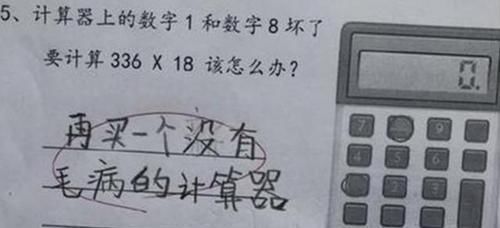 5、计算器上的数字1和数字8坏了
要计算336 X 18 该怎么办?
再买一个没有
毛病的计算器
0.
7 9
4 5 6
2 3